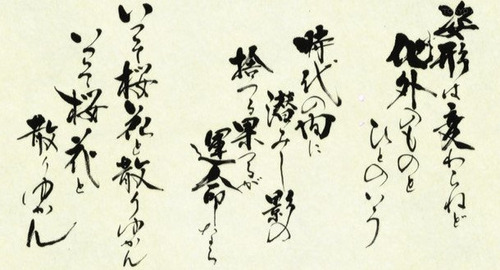 姿形は変わらねど
化外のものと
ひとのいう
時代の狗に
潜みし影の
捨つる果つるが
運命なら
いつそ桜花と散りゆかん
いつそ桜花と
散りゆかん